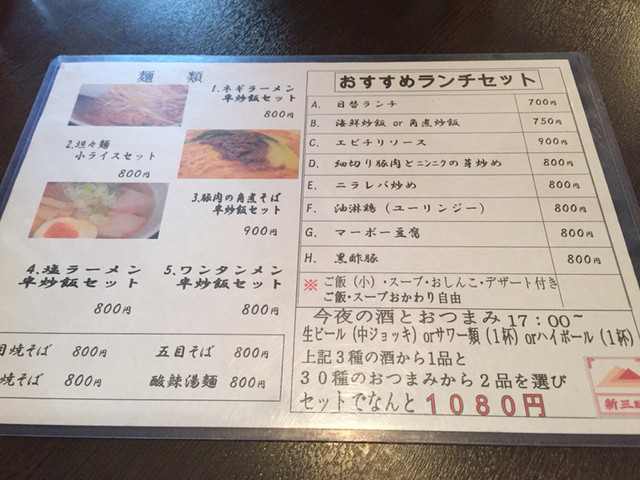 麺　類
1.ネギラーメン
半炒飯セット
800円
2.坦々麺
小ライスセット
800円
3.豚肉の角煮そば
半炒飯セット
900円
4.塩ラーメン
半炒飯セット
800円
5.ワンタンメン
半炒飯セット
800円
目焼そば 800円
五目そば 800円
焼そば 800円
酸辣湯麺 800円
おすすめランチセット
A. 日替ランチ 700円
B. 海鮮炒飯 or 角煮炒飯 750円
C. エビチリソース 900円
D. 細切り豚肉とニンニクの芽炒め 800円
E. ニラレバ炒め 800円
F. 油淋鶏（ユーリンジー） 800円
G. マーボー豆腐 800円
H. 黒酢豚 800円
※ ご飯（小）・スープ・おしんこ・デザート付き
ご飯・スープおかわり自由
今夜の酒とおつまみ 17：00～
生ビール（中ジョッキ）orサワー類（1杯）orハイボール（1杯）
上記３種の酒から１品と
３０種のおつまみから２品を選び
セットでなんと１０８０円
新三